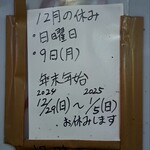 12月の休み
・日曜日
・9日(月)
年末年始
2024 2025
12/29(日)〜1/5(日)
お休みします